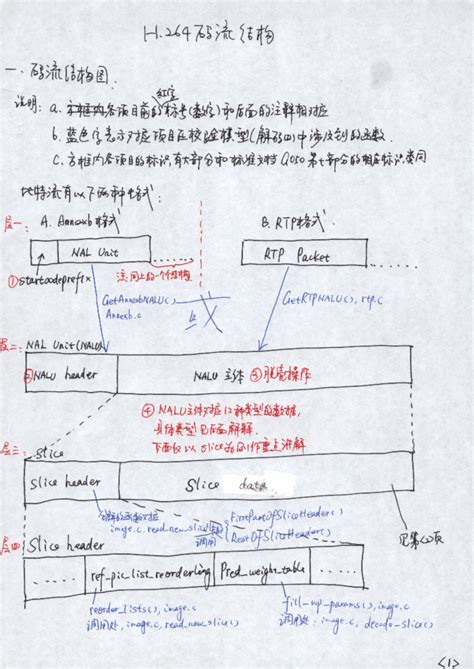 H.264码流结构
一. 码流结构图:
红字
说明: a. 方框内各项目前的标号(数字)和后面的注解相对应
b. 蓝色字表示对应项目在校验模型(解码四)中涉及到的函数
c. 方框内各项目的标识,有大部分和标准文档
比特流有以下两种格式
层一: A. Annexb格式: B. RTP格式:
NAL Unit RTP Packet
①startcodeprefix
GetAnnexbNALU() GetRTPNALU(), rtp.c
Annexb.c
层二: NAL Unit(NALU)
②NALU header NALU主体 ③脱壳操作
④ NALU主体对应12种类型的数据,
具体类型见后面解释.
下面仅以slice为例作重点讲解
层三: Slice
Slice header Slice data
image.c, read_new_slice()
调用
FirstPartOfSliceHeader()
RestOfSliceHeader()
见第(2)页
层四: Slice header
...... ref_pic_list_reordering Pred_weight_table ......
reorder_lists(), image.c fill_wp_params(), image.c
调用处, image.c, read_new_slice() 调用处: image.c, decode_slice()